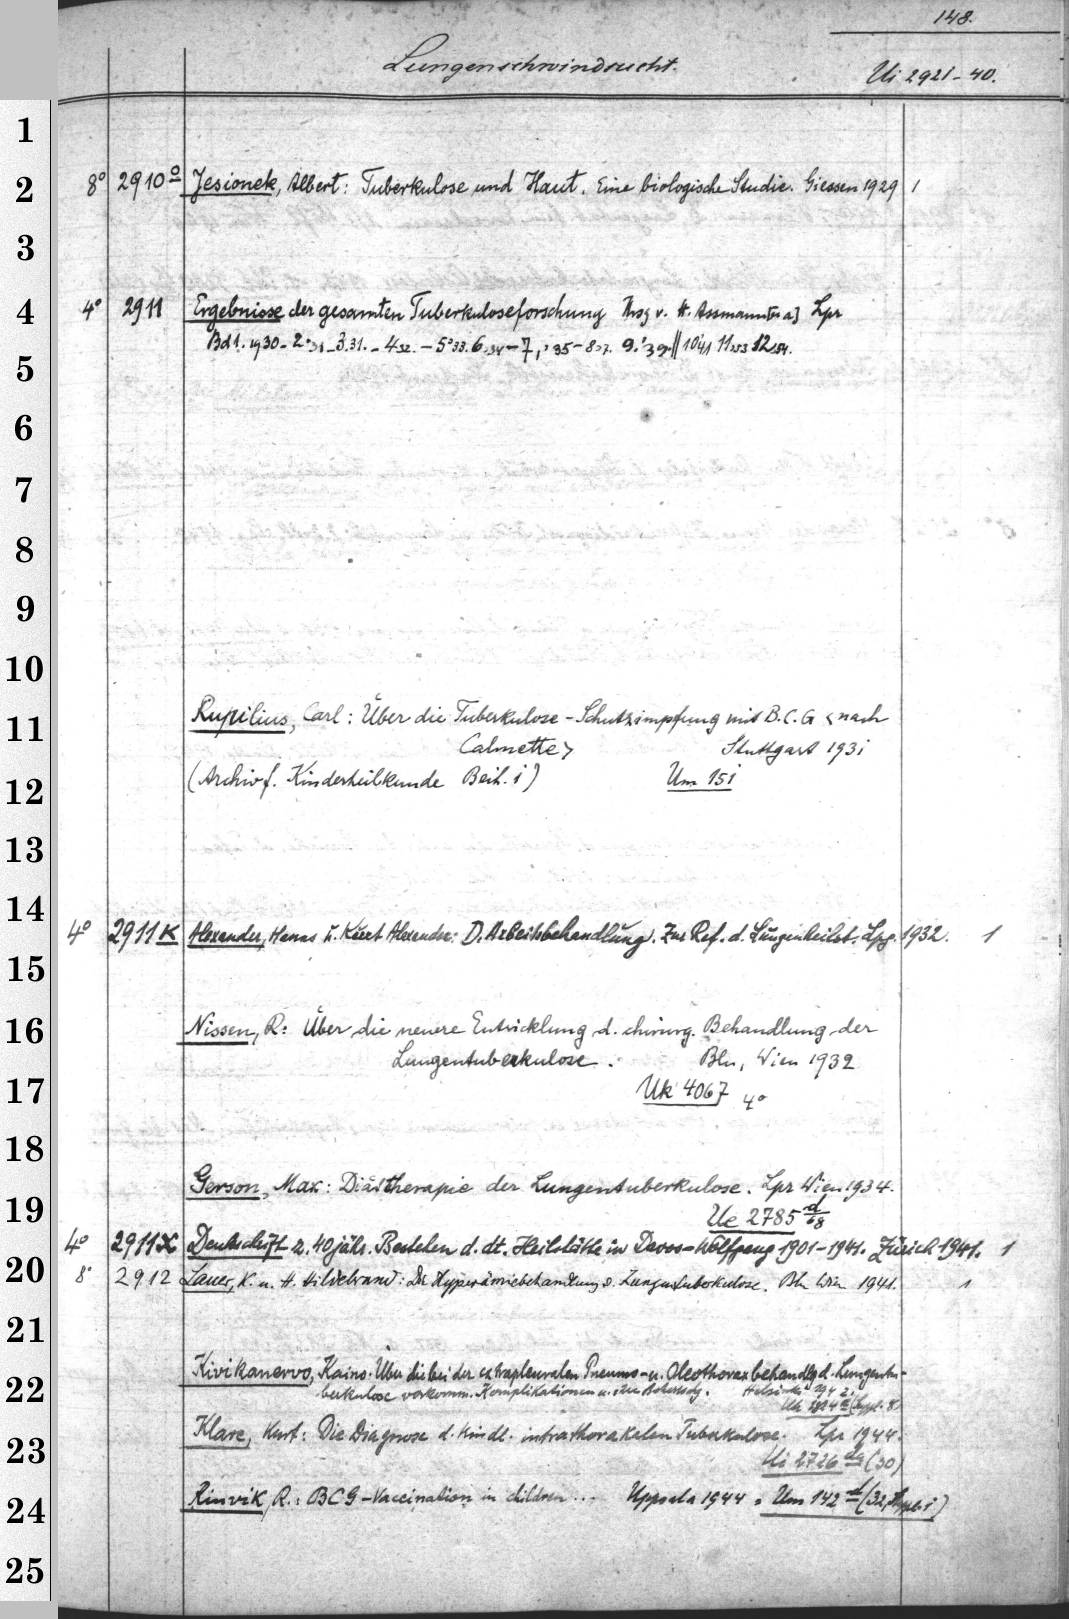 148.
Lungenschwindsucht.
Ui 2921-40.
1
2
3
4
5
6
7
8
9
10
11
12
13
14
15
16
17
18
19
20
21
22
23
24
25
8° 2910° Jesionek, Albert: Tuberkulose und Haut. Eine biologische Studie. Giessen 1929 1
4° 2911 Ergebnisse der gesamten Tuberkuloseforschung Hrsg v. H. Assmann [u a] Lpz
Bd 1. 1930 - 2. 31 - 3. 31. - 4 32. - 5 33. 6. 34 - 7, 35 - 8 37. 9. 39. || 10 41 11 53 12 54.
Rupilius, Carl: Über die Tuberkulose-Schutzimpfung mit B.C.G <nach
Calmette> Stuttgart 1931
(Archiv f. Kinderheilkunde Beih. 1) Um 151
4° 2911K Alexander, Hanns u. Kurt Alexander: D. Arbeitsbehandlung. Zur Ref. d. Lungenheilst. Lpg. 1932. 1
Nissen, R: Über die neuere Entwicklung d. chirurg. Behandlung der
Lungentuberkulose. Bln, Wien 1932
Uk 4067 4°
Gerson, Max: Diättherapie der Lungentuberkulose. Lpz Wien 1934.
Ue 2785 d/68
4° 2911X Denkschrift z. 40jähr. Bestehen d. dt. Heilstätte in Davos-Wolfgang 1901-1941. Zürich 1941. 1
8° 2912 Lauer, K. u. H. Hildebrand: Die Hyperämiebehandlung d. Lungentuberkulose. Bln Wien 1941. 1
Kivikanervo, Kaino. Über die bei der extrapleuralen Pneumo- u. Oleothoraxbehandlg d. Lungentu-
berkulose vorkomm. Komplikationen u. Helsinki 1942.
Klare, Kurt: Die Diagnose d. kindl. intrathorakalen Tuberkulose. Lpz 1944.
Ui 2726 da (30)
Rinvik, R.: BCG-Vaccination in children ... Uppsala 1944. Um 142 d (32, Suppl. 1)